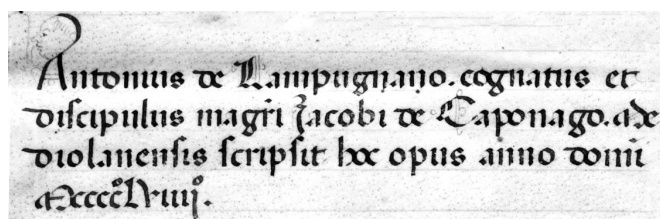 Antonius de Lampugnano. cognatus et
discipulus magri Jacobi de Caponago. Me
diolanensis scripsit hoc opus anno domi
Mcccc°Lviiij°.